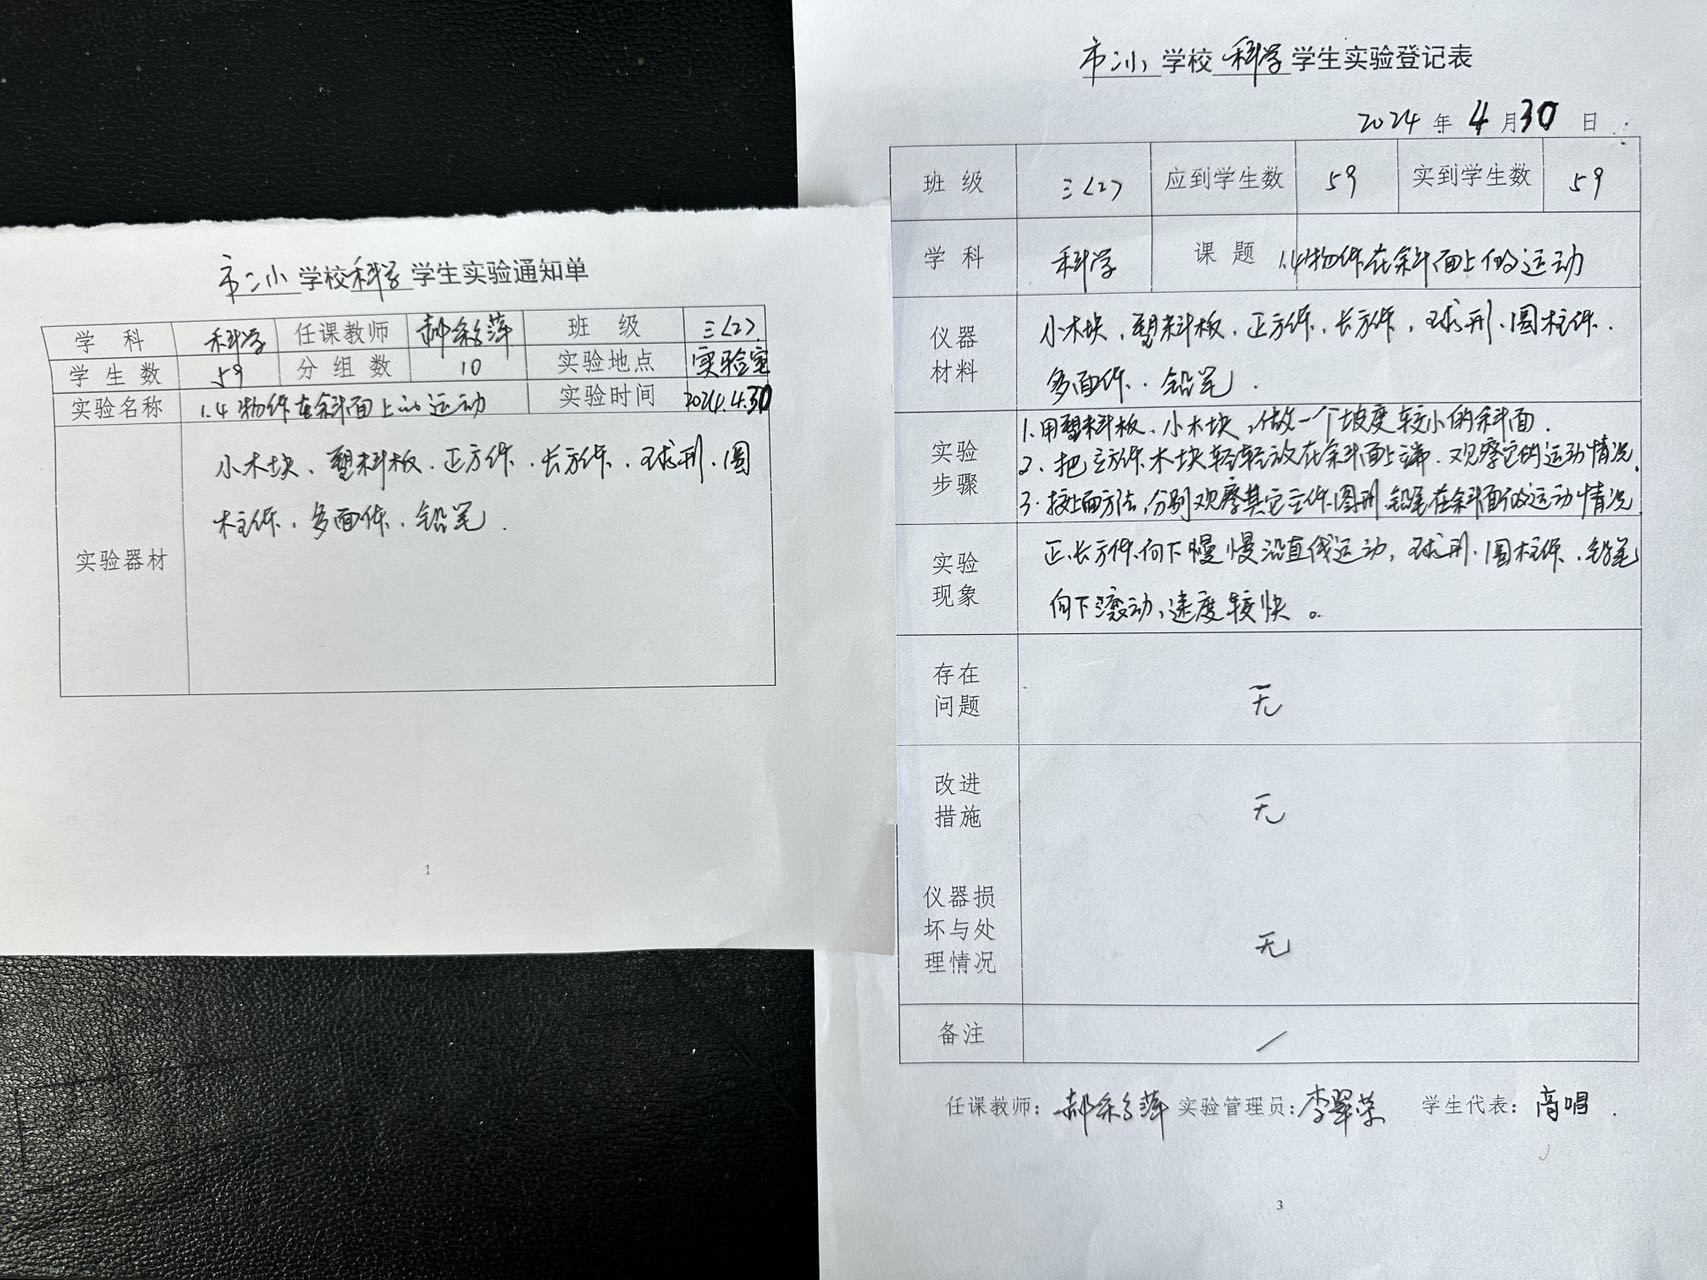 市二小学校科学学生实验通知单
学科 科学 任课教师 郝彩萍 班级 三〈2〉
学生数 59 分组数 10 实验地点 实验室
实验名称 1.4物体在斜面上的运动 实验时间 2024.4.30
实验器材
小木块、塑料板、正方体、长方体、球形、圆
柱体、多面体、铅笔.
1
市二小学校科学学生实验登记表
2024年4月30日
班级 三〈2〉 应到学生数 59 实到学生数 59
学科 科学 课题 1.4物体在斜面上的运动
仪器
材料
小木块、塑料板、正方体、长方体、球形、圆柱体、
多面体、铅笔.
实验
步骤
1.用塑料板、小木块,做一个坡度较小的斜面.
2.把立方体木块轻轻放在斜面上端.观察它的运动情况.
3.按上面方法,分别观察其它立体图形、铅笔在斜面的运动情况
实验
现象
正、长方体向下慢慢沿直线运动,球形、圆柱体、铅笔
向下滚动,速度较快。
存在
问题
无
改进
措施
无
仪器损
坏与处
理情况
无
备注 /
任课教师:郝彩萍 实验管理员:李翠荣 学生代表:高唱.
3